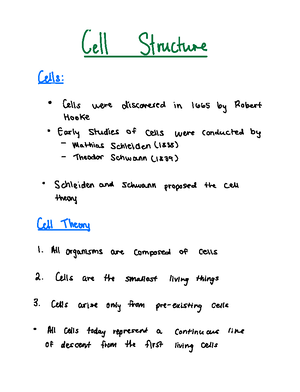 Cell Structure
Cells:
• Cells were discovered in 1665 by Robert
Hooke
• Early Studies of Cells were conducted by
– Mathias Schleiden (1838)
– Theodor Schwann (1839)
• Schleiden and Schwann proposed the Cell
theory
Cell Theory
1. All organisms are composed of cells
2. Cells are the smallest living things
3. Cells arise only from pre-existing cells
• All cells today represent a continuous line
of descent from the first living cells